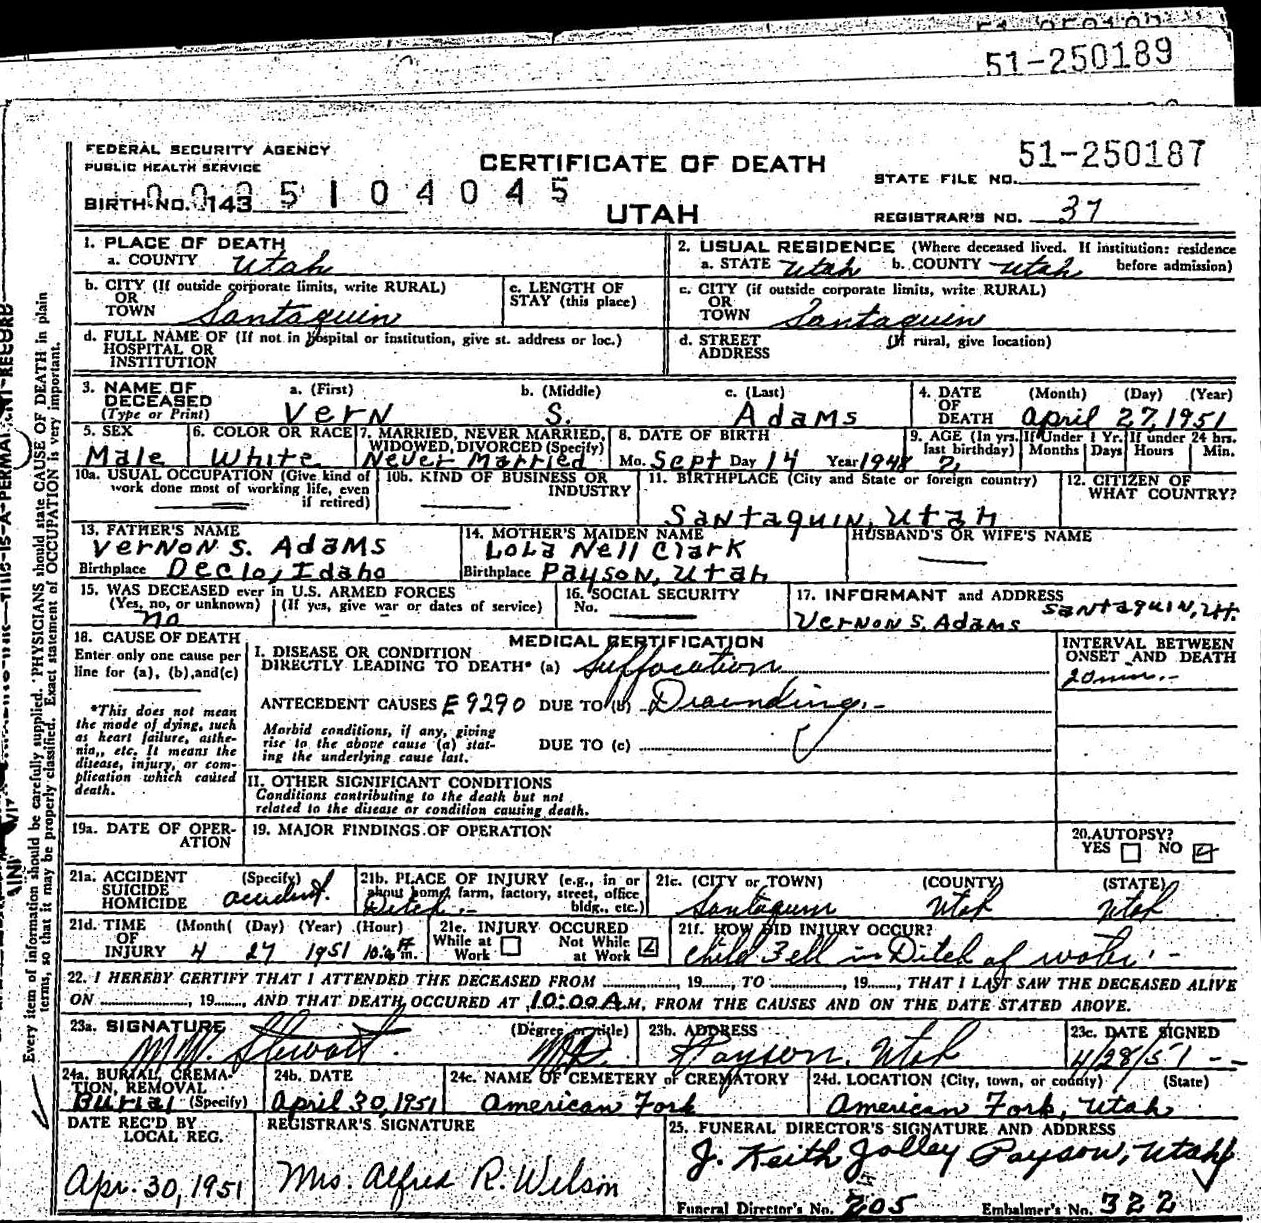 51-250189
FEDERAL SECURITY AGENCY
PUBLIC HEALTH SERVICE
CERTIFICATE OF DEATH
UTAH
51-250187
STATE FILE NO.
BIRTH NO. 143 0005104045
REGISTRAR'S NO. 37
1. PLACE OF DEATH
a. COUNTY Utah
2. USUAL RESIDENCE (Where deceased lived. If institution: residence before admission)
a. STATE Utah b. COUNTY Utah
b. CITY (If outside corporate limits, write RURAL)
OR
TOWN Santaquin
c. LENGTH OF
STAY (this place)
c. CITY (if outside corporate limits, write RURAL)
OR
TOWN Santaquin
d. FULL NAME OF (If not in hospital or institution, give st. address or loc.)
HOSPITAL OR
INSTITUTION
d. STREET (If rural, give location)
ADDRESS
3. NAME OF DECEASED (Type or Print)
a. (First) b. (Middle) c. (Last)
Vern S. Adams
4. DATE OF DEATH (Month) (Day) (Year)
April 27, 1951
5. SEX
Male
6. COLOR OR RACE
White
7. MARRIED, NEVER MARRIED, WIDOWED, DIVORCED (Specify)
Never Married
8. DATE OF BIRTH
Mo. Sept Day 14 Year 1948
9. AGE (In yrs. last birthday) 2
If Under 1 Yr. Months Days
If under 24 hrs. Hours Min.
10a. USUAL OCCUPATION (Give kind of work done most of working life, even if retired)
10b. KIND OF BUSINESS OR INDUSTRY
11. BIRTHPLACE (City and State or foreign country)
Santaquin, Utah
12. CITIZEN OF WHAT COUNTRY?
13. FATHER'S NAME
Vernon S. Adams
Birthplace Declo, Idaho
14. MOTHER'S MAIDEN NAME
Lola Nell Clark
Birthplace Payson, Utah
HUSBAND'S OR WIFE'S NAME
15. WAS DECEASED ever in U.S. ARMED FORCES
(Yes, no, or unknown) (If yes, give war or dates of service)
no
16. SOCIAL SECURITY
No.
17. INFORMANT and ADDRESS
Santaquin, Ut.
Vernon S. Adams
18. CAUSE OF DEATH
Enter only one cause per
line for (a), (b), and (c)
*This does not mean
the mode of dying, such
as heart failure, asthe-
nia,, etc. It means the
disease, injury, or com-
plication which caused
death.
MEDICAL CERTIFICATION
I. DISEASE OR CONDITION
DIRECTLY LEADING TO DEATH* (a) Suffocation
ANTECEDENT CAUSES E9290 DUE TO (b) Drounding.-
Morbid conditions, if any, giving
rise to the above cause (a) stat-
ing the underlying cause last.
DUE TO (c)
INTERVAL BETWEEN
ONSET AND DEATH
20 min.-
II. OTHER SIGNIFICANT CONDITIONS
Conditions contributing to the death but not
related to the disease or condition causing death.
19a. DATE OF OPER-
ATION
19. MAJOR FINDINGS OF OPERATION
20. AUTOPSY?
YES NO
21a. ACCIDENT (Specify)
SUICIDE
HOMICIDE accident.
21b. PLACE OF INJURY (e.g., in or
about home, farm, factory, street, office
bldg., etc.)
Ditch.-
21c. (CITY or TOWN) (COUNTY) (STATE)
Santaquin Utah Utah
21d. TIME (Month) (Day) (Year) (Hour)
OF
INJURY 4 27 1951
21e. INJURY OCCURED
While at Work Not While at Work
21f. HOW DID INJURY OCCUR?
Child Fell in Ditch of water.-
22. I HEREBY CERTIFY THAT I ATTENDED THE DECEASED FROM , 19 , TO , 19 , THAT I LAST SAW THE DECEASED ALIVE
ON , 19 , AND THAT DEATH OCCURED AT 10:00 A.M, FROM THE CAUSES AND ON THE DATE STATED ABOVE.
23a. SIGNATURE (Degree or title)
M.W. Stewart. MD.
23b. ADDRESS
Payson, Utah
23c. DATE SIGNED
4/28/51--
24a. BURIAL, CREMA-
TION, REMOVAL
Burial (Specify)
24b. DATE
April 30, 1951
24c. NAME OF CEMETERY or CREMATORY
American Fork
24d. LOCATION (City, town, or county) (State)
American Fork, Utah
DATE REC'D BY
LOCAL REG.
Apr. 30, 1951
REGISTRAR'S SIGNATURE
Mrs. Alfred R. Wilson
25. FUNERAL DIRECTOR'S SIGNATURE AND ADDRESS
J. Keith Jolley Payson, Utah
Funeral Director's No. 205 Embalmer's No. 322
Every item of information should be carefully supplied. PHYSICIANS should state CAUSE OF DEATH in plain
terms, so that it may be properly classified. Exact statement of OCCUPATION is very important.